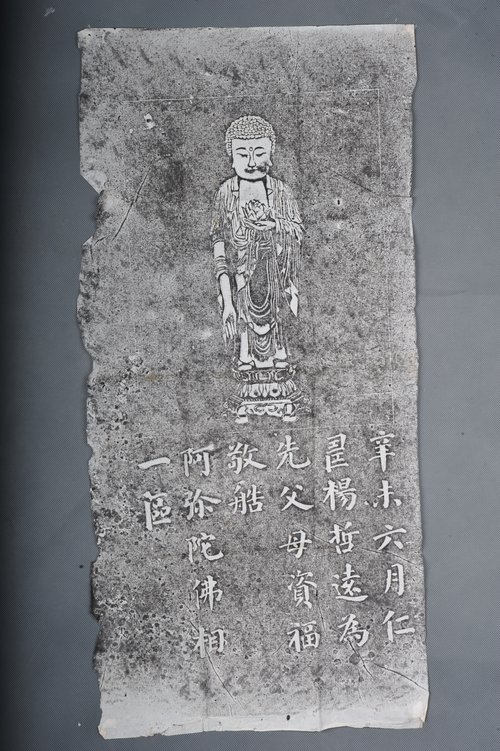 辛未六月仁
楊哲遠為
先父母資福
敬艁
阿弥陀佛相
一區